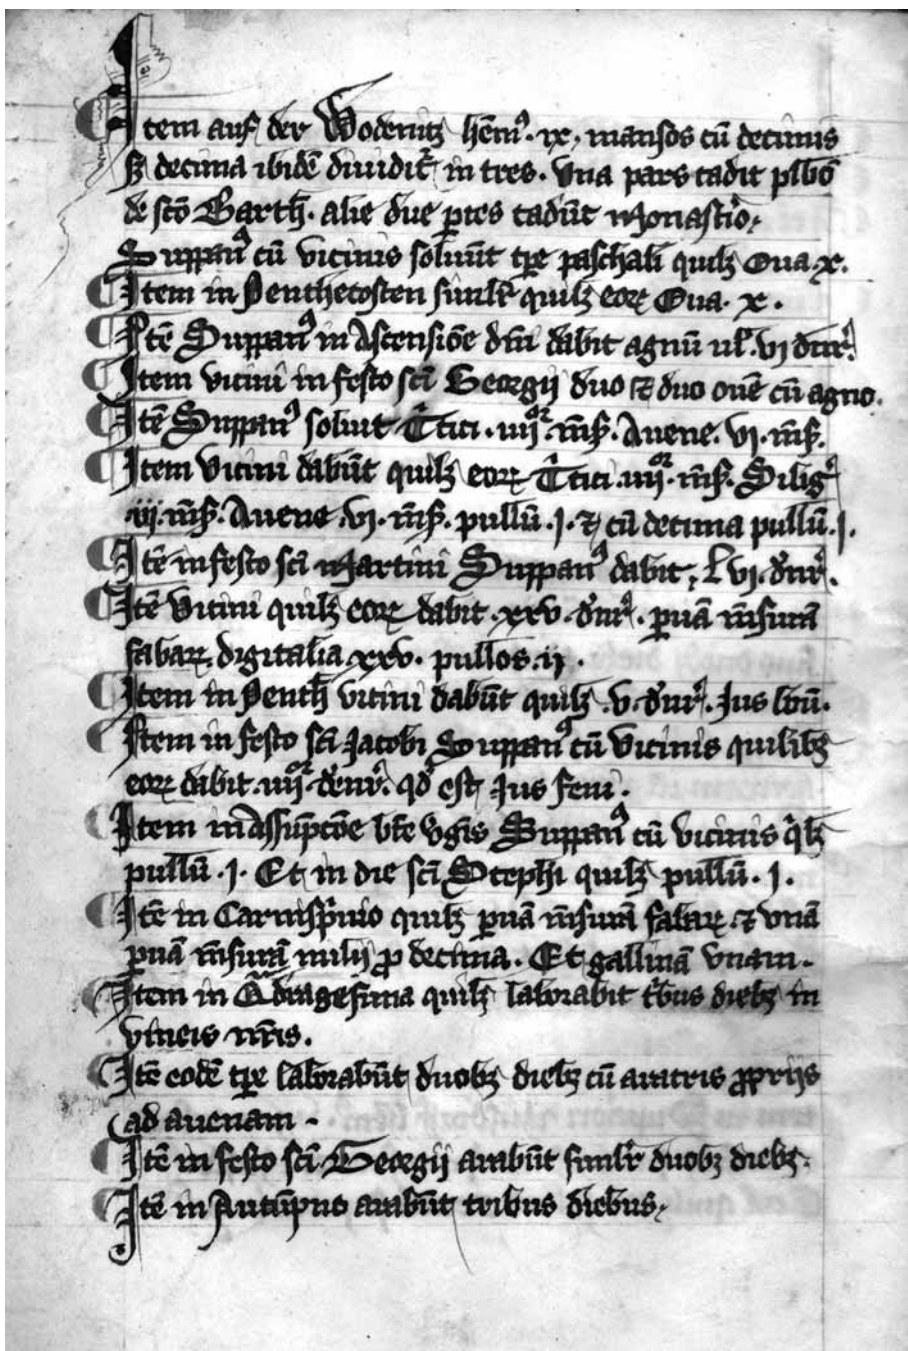 Item auf der Wodenitz hēm⁹ · ix · mansos cū decimis
sʒ decima ibidē diuidit᷑ in tres · Vna pars cadit plbō
de scō Barth · alie due ꝑtes cadūt Monast̕io
Suppan⁹ cū vicinis soluūt tꝑe paschali quilꝫ Oua · x ·
Item in Penthecosten similr̕ quilꝫ eoꝝ Oua · x ·
Itē Suppan⁹ in Ascensiōe dn̄i dabit agnū ul̕ · vj dn̄r̕
Item vicini in festo sc̄i Georgij duo ⁊ duo ouē cū agno ·
Itē Suppan⁹ soluit T̕tici · iiijᵒʳ · m̄s̕ · Auene · vj · m̄s̕ ·
Item Vicini dabūt quilꝫ eoꝝ T̕tici · iiijᵒʳ · m̄s̕ · Silig̕
· iij · m̄s̕ · Auene · vj · m̄s̕ · pullū · j · ⁊ cū decima pullū · j ·
Itē in festo sc̄i Martini Suppan⁹ dabit · Lvj · dn̄r̕ ·
Itē Vicini quilꝫ eoꝝ dabit · xxv · dn̄r̕ · ꝑuā m̄surā
fabaꝝ digitalia xxv · pullos · ij ·
Item in Penth̄ vicini dabūt quilꝫ · v · dn̄r̕ · Jus
Item in festo sc̄i Jacobi Suppan⁹ cū Vicinis quilibꝫ
eoꝝ dabit · iiijᵒʳ · den̄r̕ · qd̕ est Jus feni ·
Item in Assūpcōe bt̄e v̕gīs Suppan⁹ cū vicinis q̕lꝫ
pullū · j · Et in die sc̄i Stephi quilꝫ pullū · j ·
Itē in Carnisp̕uio quilꝫ ꝑuā m̄surā fabaꝝ ⁊ vnā
ꝑuā m̄surā milij ꝓ decima · Et gallinā vnam ·
Item in Qᵃdragesima quilꝫ laborabit t̕bus diebꝫ in
vineis nr̄is ·
Itē eodē tꝑe laborabūt duobꝫ diebꝫ cū aratris ꝓprijs
ad auenam ·
Itē in festo sc̄i Georgij arabūt similr̕ duobꝫ diebꝫ ·
Itē in Autūpno arabūt tribus diebus ·